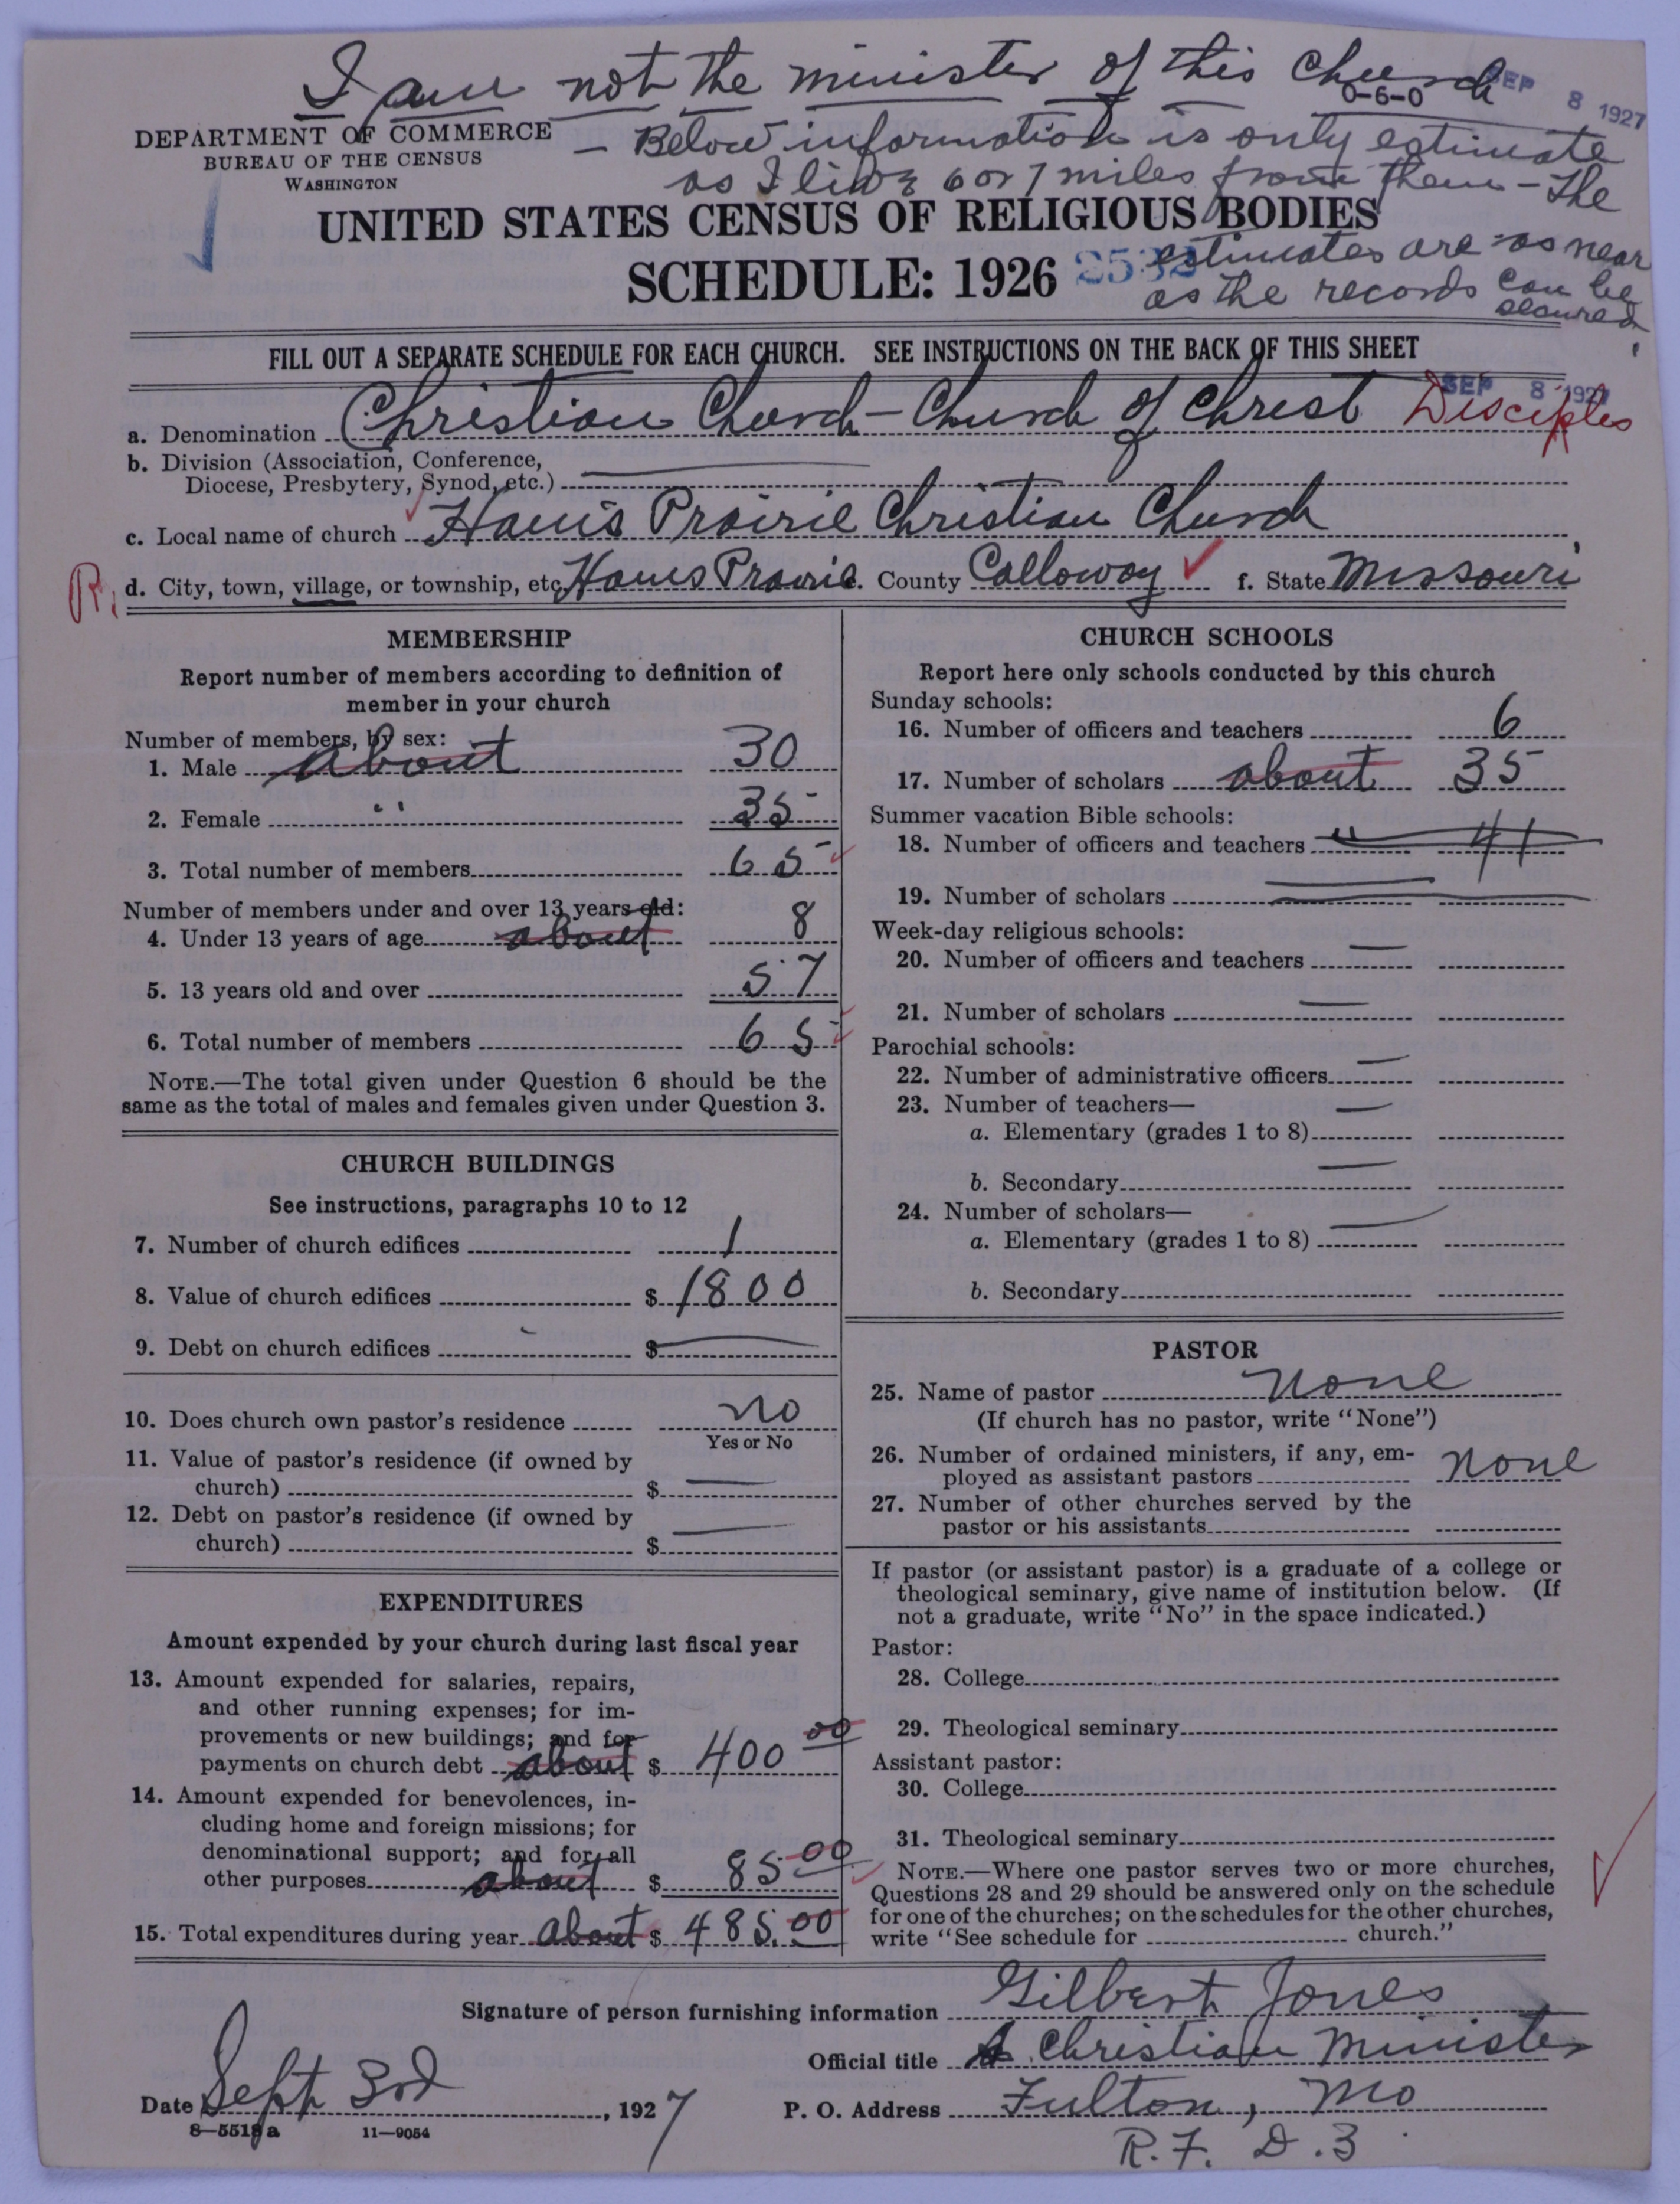 I am not the minister of this Church
0-6-0
SEP 8 1927
DEPARTMENT OF COMMERCE
BUREAU OF THE CENSUS
WASHINGTON
— Below information is only estimate
as I live 6 or 7 miles from them — The
UNITED STATES CENSUS OF RELIGIOUS BODIES
estimates are as near
SCHEDULE: 1926 2532
as the records can be
secured
FILL OUT A SEPARATE SCHEDULE FOR EACH CHURCH. SEE INSTRUCTIONS ON THE BACK OF THIS SHEET
SEP 8 1927
a. Denomination Christian Church - Church of Christ Disciples
b. Division (Association, Conference,
Diocese, Presbytery, Synod, etc.)
c. Local name of church Hams Prairie Christian Church
R. d. City, town, village, or township, etc. Hams Prairie e. County Calloway f. State Missouri
MEMBERSHIP
Report number of members according to definition of
member in your church
Number of members, by sex:
1. Male about 30
2. Female " 35
3. Total number of members 65
Number of members under and over 13 years old:
4. Under 13 years of age about 8
5. 13 years old and over 57
6. Total number of members 65
NOTE.—The total given under Question 6 should be the
same as the total of males and females given under Question 3.
CHURCH BUILDINGS
See instructions, paragraphs 10 to 12
7. Number of church edifices 1
8. Value of church edifices $ 1800
9. Debt on church edifices $ —
10. Does church own pastor's residence no
Yes or No
11. Value of pastor's residence (if owned by
church) $ —
12. Debt on pastor's residence (if owned by
church) $ —
EXPENDITURES
Amount expended by your church during last fiscal year
13. Amount expended for salaries, repairs,
and other running expenses; for im-
provements or new buildings; and for
payments on church debt about $ 400 00
14. Amount expended for benevolences, in-
cluding home and foreign missions; for
denominational support; and for all
other purposes about $ 85 00
15. Total expenditures during year about $ 485.00
CHURCH SCHOOLS
Report here only schools conducted by this church
Sunday schools:
16. Number of officers and teachers 6
17. Number of scholars about 35
Summer vacation Bible schools:
18. Number of officers and teachers 41
19. Number of scholars —
Week-day religious schools:
20. Number of officers and teachers —
21. Number of scholars —
Parochial schools:
22. Number of administrative officers —
23. Number of teachers—
a. Elementary (grades 1 to 8) —
b. Secondary —
24. Number of scholars—
a. Elementary (grades 1 to 8) —
b. Secondary
PASTOR
25. Name of pastor None
(If church has no pastor, write "None")
26. Number of ordained ministers, if any, em-
ployed as assistant pastors none
27. Number of other churches served by the
pastor or his assistants
If pastor (or assistant pastor) is a graduate of a college or
theological seminary, give name of institution below. (If
not a graduate, write "No" in the space indicated.)
Pastor:
28. College
29. Theological seminary
Assistant pastor:
30. College
31. Theological seminary
NOTE.—Where one pastor serves two or more churches,
Questions 28 and 29 should be answered only on the schedule
for one of the churches; on the schedules for the other churches,
write "See schedule for church."
Signature of person furnishing information Gilbert Jones
Official title A Christian Minister
Date Sept 3rd, 1927 P. O. Address Fulton, Mo
8-5518 a 11-9054
R. F. D. 3